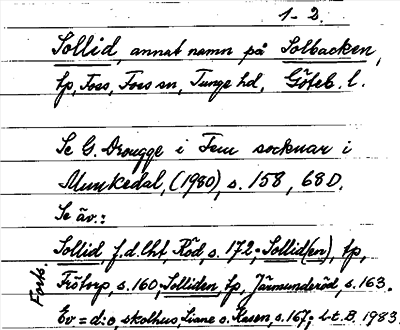 1-2.
Sollid, annat namn på Solbacken,
tp, Foss, Foss sn, Tunge hd, Göteb. l.
Se G. Drougge i Fem socknar i
Munkedal, (1980), s. 158, 68 D.
Se äv.:
Sollid, f.d. lht Röd, s. 172. Sollid(en), tp,
Frötorp, s. 160, Solliden tp, Järmunderöd, s. 163.
Ev = d:o, skolhus, Liane o. Kasen, s. 167; L.t.B. 1983
Forts.